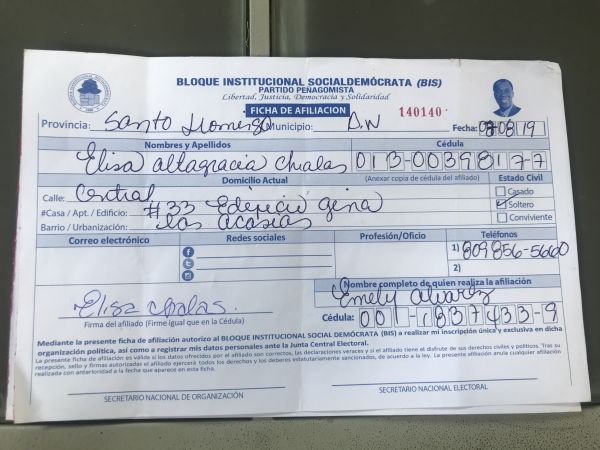 BLOQUE INSTITUCIONAL SOCIALDEMÓCRATA (BIS)
PARTIDO PEÑAGOMISTA
Libertad, Justicia, Democracia y Solidaridad
FICHA DE AFILIACION
140140
Provincia: Santo Domingo Municipio: D.N Fecha: 08/08/19
Nombres y Apellidos Cédula
Elisa altagracia chalas 013-0039817-7
Domicilio Actual (Anexar copia de cédula del afiliado) Estado Civil
Calle: Central Casado
#Casa / Apt. / Edificio: #33 Edificio gina Soltero
Barrio / Urbanización: las acasias Conviviente
Correo electrónico Redes sociales Profesión/Oficio Teléfonos
1) 809 856-5660
2)
Nombre completo de quien realiza la afiliación
Emely alvarez
Elisa chalas.
Cédula: 001-1837433-9
Firma del afiliado (Firme igual que en la Cédula)
Mediante la presente ficha de afiliación autorizo al BLOQUE INSTITUCIONAL SOCIAL DEMÓCRATA (BIS) a realizar mi inscripción única y exclusiva en dicha
organización política, así como a registrar mis datos personales ante la Junta Central Electoral.
La presente ficha de afiliación es válida si los datos ofrecidos por el afiliado son correctos, las declaraciones veraces y si el titular tiene el disfrute de sus derechos civiles y políticos. Tras su
recepción, sello y firmas autorizadas el afiliado ejercerá todos los derechos y los deberes estatutariamente sancionados, de acuerdo a la ley. La presente afiliación anula cualquier afiliación
realizada con anterioridad a la fecha que aparece en esta ficha.
SECRETARIO NACIONAL DE ORGANIZACIÓN
SECRETARIO NACIONAL ELECTORAL